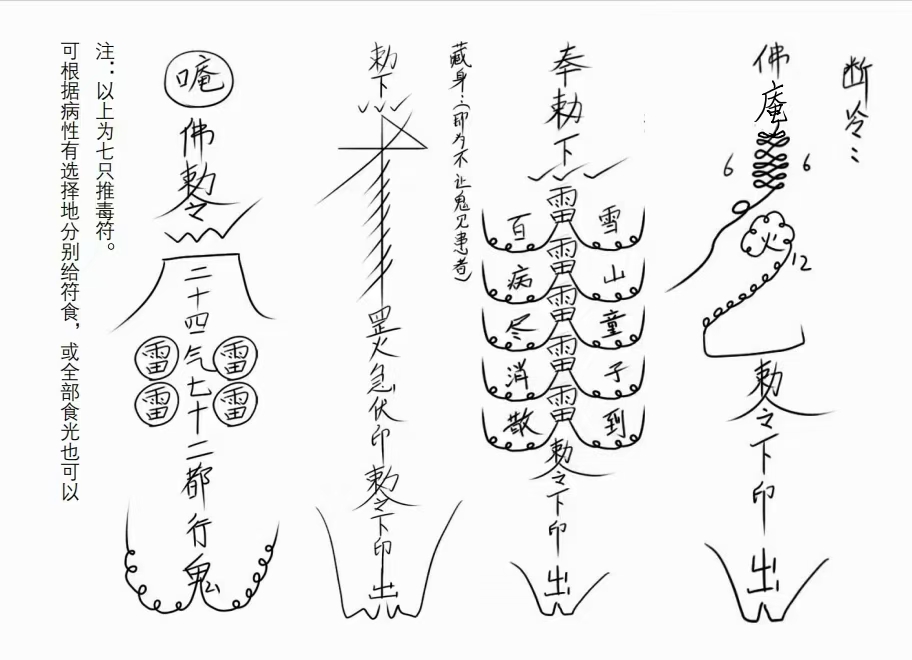 断冷：
佛
唵
6 6
火
12
勅令下印
出
奉勅下
雷雷雷雷雷
雪山童子到
百病尽消散
勅令下印
出
藏身：（即为不让鬼见患者）
勅下
罡火急伏印勅令下印
出
唵
佛勅令
二十四气七十二都行鬼
雷雷
雷雷
注：以上为七只推毒符。
可根据病性有选择地分别给符食，或全部食光也可以